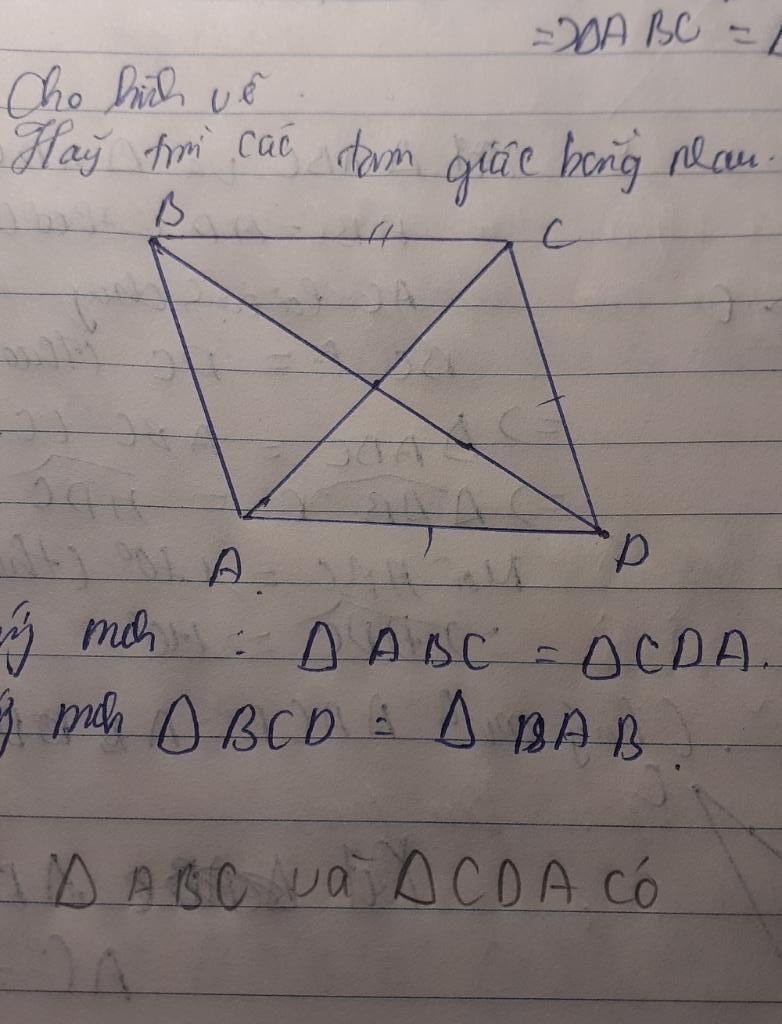 => ΔABC = Δ
Cho hình vẽ.
Hãy tìm các tam giác bằng nhau.
B
C
A
D
mch : ΔABC = ΔCDA.
mch ΔBCD = Δ AB.
ΔABC và ΔCDA có